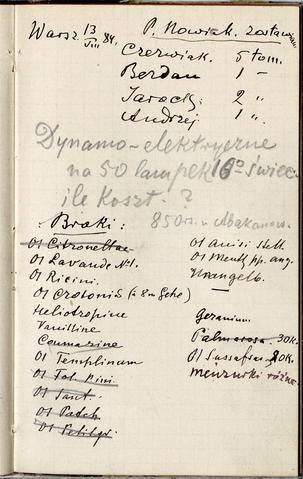 Warsz. 13/VIII 84. P. Nowiak. zostawi
Czerwiak. 5 tom.
Berdau 1 -
Jarocki 2 "
Andrzej 1 "
Dynamo-elektryczne
na 50 lampek 16° świec
ile koszt. ?
850 rs. u Abakanow.
Braki:
Ol Citronellae
Ol Lavande No 1.
Ol Ricini.
Ol Crotonis (à 8 m Gehe)
Heliotropine
Vanilline
Coumarine
Ol Templinum
Ol Fol Pini.
Ol Sant.
Ol Patch
Ol Petitgr.
Ol Anisi Stell.
Ol Menth pp. ang.
Geranium
Palmarosa. 30K.
Ol Sassafras 20K.
menzurki różne